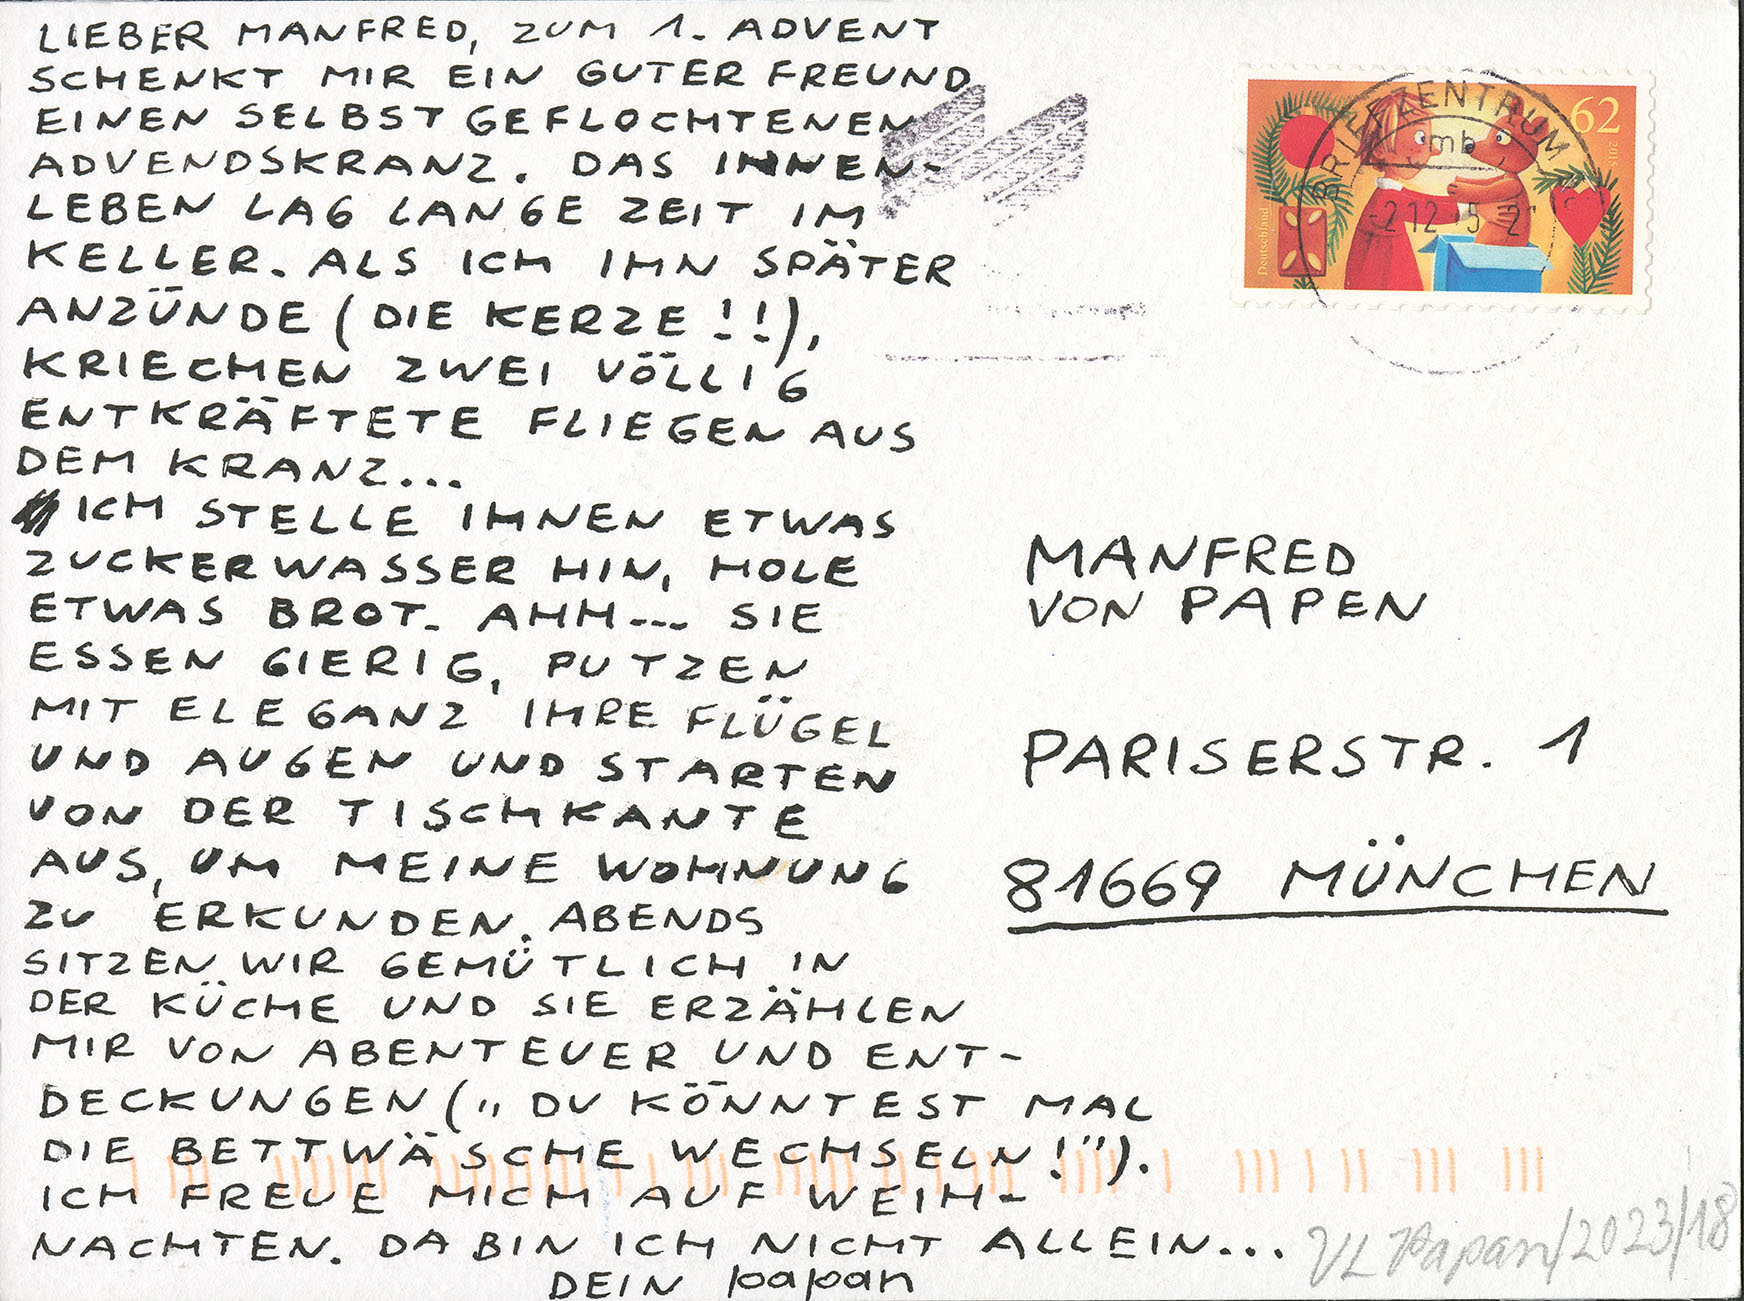 LIEBER MANFRED, ZUM 1. ADVENT
SCHENKT MIR EIN GUTER FREUND
EINEN SELBST GEFLOCHTENEN
ADVENDSKRANZ. DAS INNEN-
LEBEN LAG LANGE ZEIT IM
KELLER. ALS ICH IHN SPÄTER
ANZÜNDE (DIE KERZE!!),
KRIECHEN ZWEI VÖLLIG
ENTKRÄFTETE FLIEGEN AUS
DEM KRANZ...
ICH STELLE IHNEN ETWAS
ZUCKERWASSER HIN, HOLE
ETWAS BROT. AHH... SIE
ESSEN GIERIG, PUTZEN
MIT ELEGANZ IHRE FLÜGEL
UND AUGEN UND STARTEN
VON DER TISCHKANTE
AUS, UM MEINE WOHNUNG
ZU ERKUNDEN. ABENDS
SITZEN WIR GEMÜTLICH IN
DER KÜCHE UND SIE ERZÄHLEN
MIR VON ABENTEUER UND ENT-
DECKUNGEN („DU KÖNNTEST MAL
DIE BETTWÄSCHE WECHSELN!").
ICH FREUE MICH AUF WEIH-
NACHTEN. DA BIN ICH NICHT ALLEIN...
DEIN papan
62
2015
Deutschland
BRIEFZENTRUM
mb
-2.12.15-21
MANFRED
VON PAPEN
PARISERSTR. 1
81669 MÜNCHEN
VL Papan/2023/18